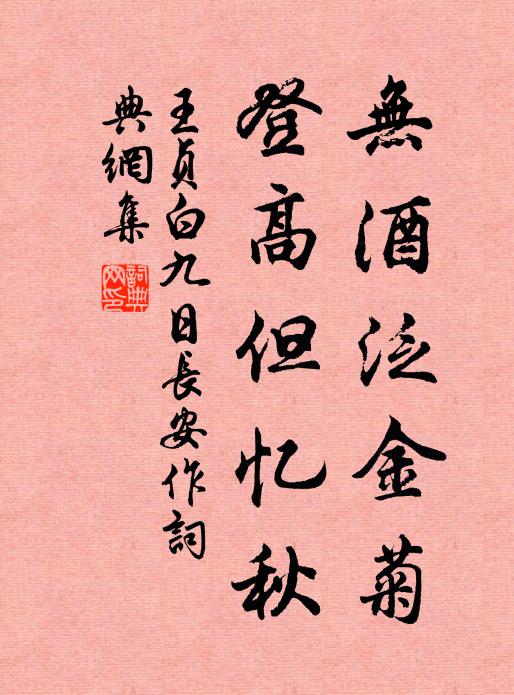 無酒泛金菊
登高但忆秋
王貞白九日長安作詞
典網集
詞典網印